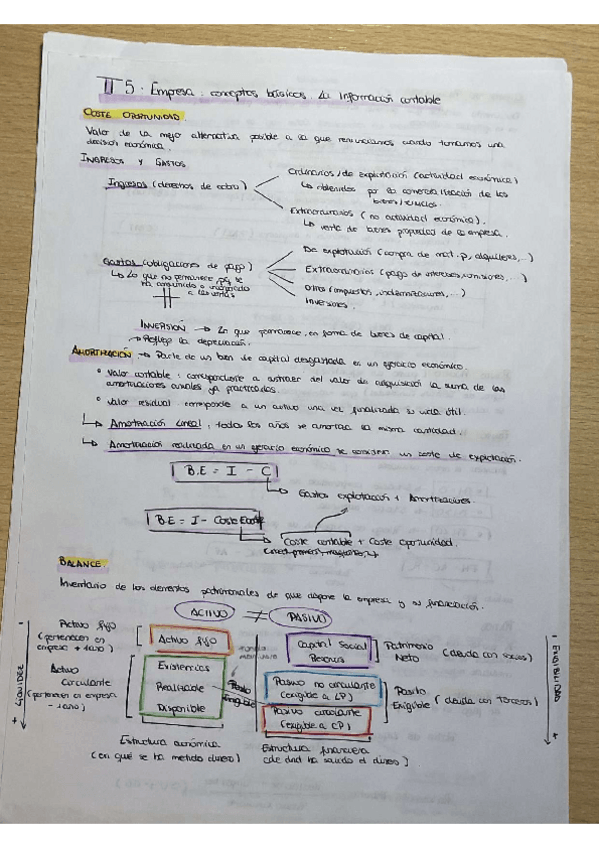 T5. Empresa: conceptos básicos. La información contable
COSTE OPORTUNIDAD
Valor de la mejor alternativa posible a la que renunciamos cuando tomamos una
decisión económica.
INGRESOS Y GASTOS
Ingresos (derechos de cobro)
Ordinarios / de explotación (actividad económica)
↳ obtenidos por la comercialización de los
bienes/servicios.
Extraordinarios (no actividad económica).
↳ venta de bienes propiedad de la empresa.
Gastos (obligaciones de pago)
↳ Lo que no permanece, pq se
ha consumido o incorporado
a las ventas
De explotación (compra de mat. p, alquileres, ...)
Extraordinarios (pago de intereses, comisiones, ...)
Otros (impuestos, indemnizaciones, ...)
Inversiones.
INVERSIÓN → Lo que permanece, en forma de bienes de capital.
→ Refleja la depreciación.
AMORTIZACIÓN → Parte de un bien de capital desgastada en un ejercicio económico.
• Valor contable: correspondiente a sustraer del valor de adquisición la suma de las
amortizaciones anuales ya practicadas.
• Valor residual: corresponde a un activo una vez finalizada su vida útil.
↳ Amortización lineal: todos los años se amortiza la misma cantidad.
↳ Amortización realizada en un ejercicio económico se considera un coste de explotación.
B.E = I - C
↳ Gastos explotación + Amortizaciones.
B.E = I - Coste Econó
Coste contable + Coste oportunidad.
BALANCE
Inventario de los elementos patrimoniales de que dispone la empresa y su financiación.
ACTIVO = PASIVO
- LIQUIDEZ +
Activo fijo
(pertenecen en
empresa + 1año)
Activo
Circulante
(pertenecen en empresa
- 1año)
Activo fijo
Existencias
Realizable
Disponible
Fondo
Maniobra
Pasivo
Exigible
Capital Social
Reservas
Pasivo no circulante
(exigible a LP)
Pasivo circulante
(exigible a CP)
Patrimonio
Neto (deuda con socios)
Pasivo
Exigible (deuda con Terceros)
- EXIGIBILIDAD +
Estructura económica
(en qué se ha metido dinero)
Estructura financiera
(de dnd ha salido el dinero)